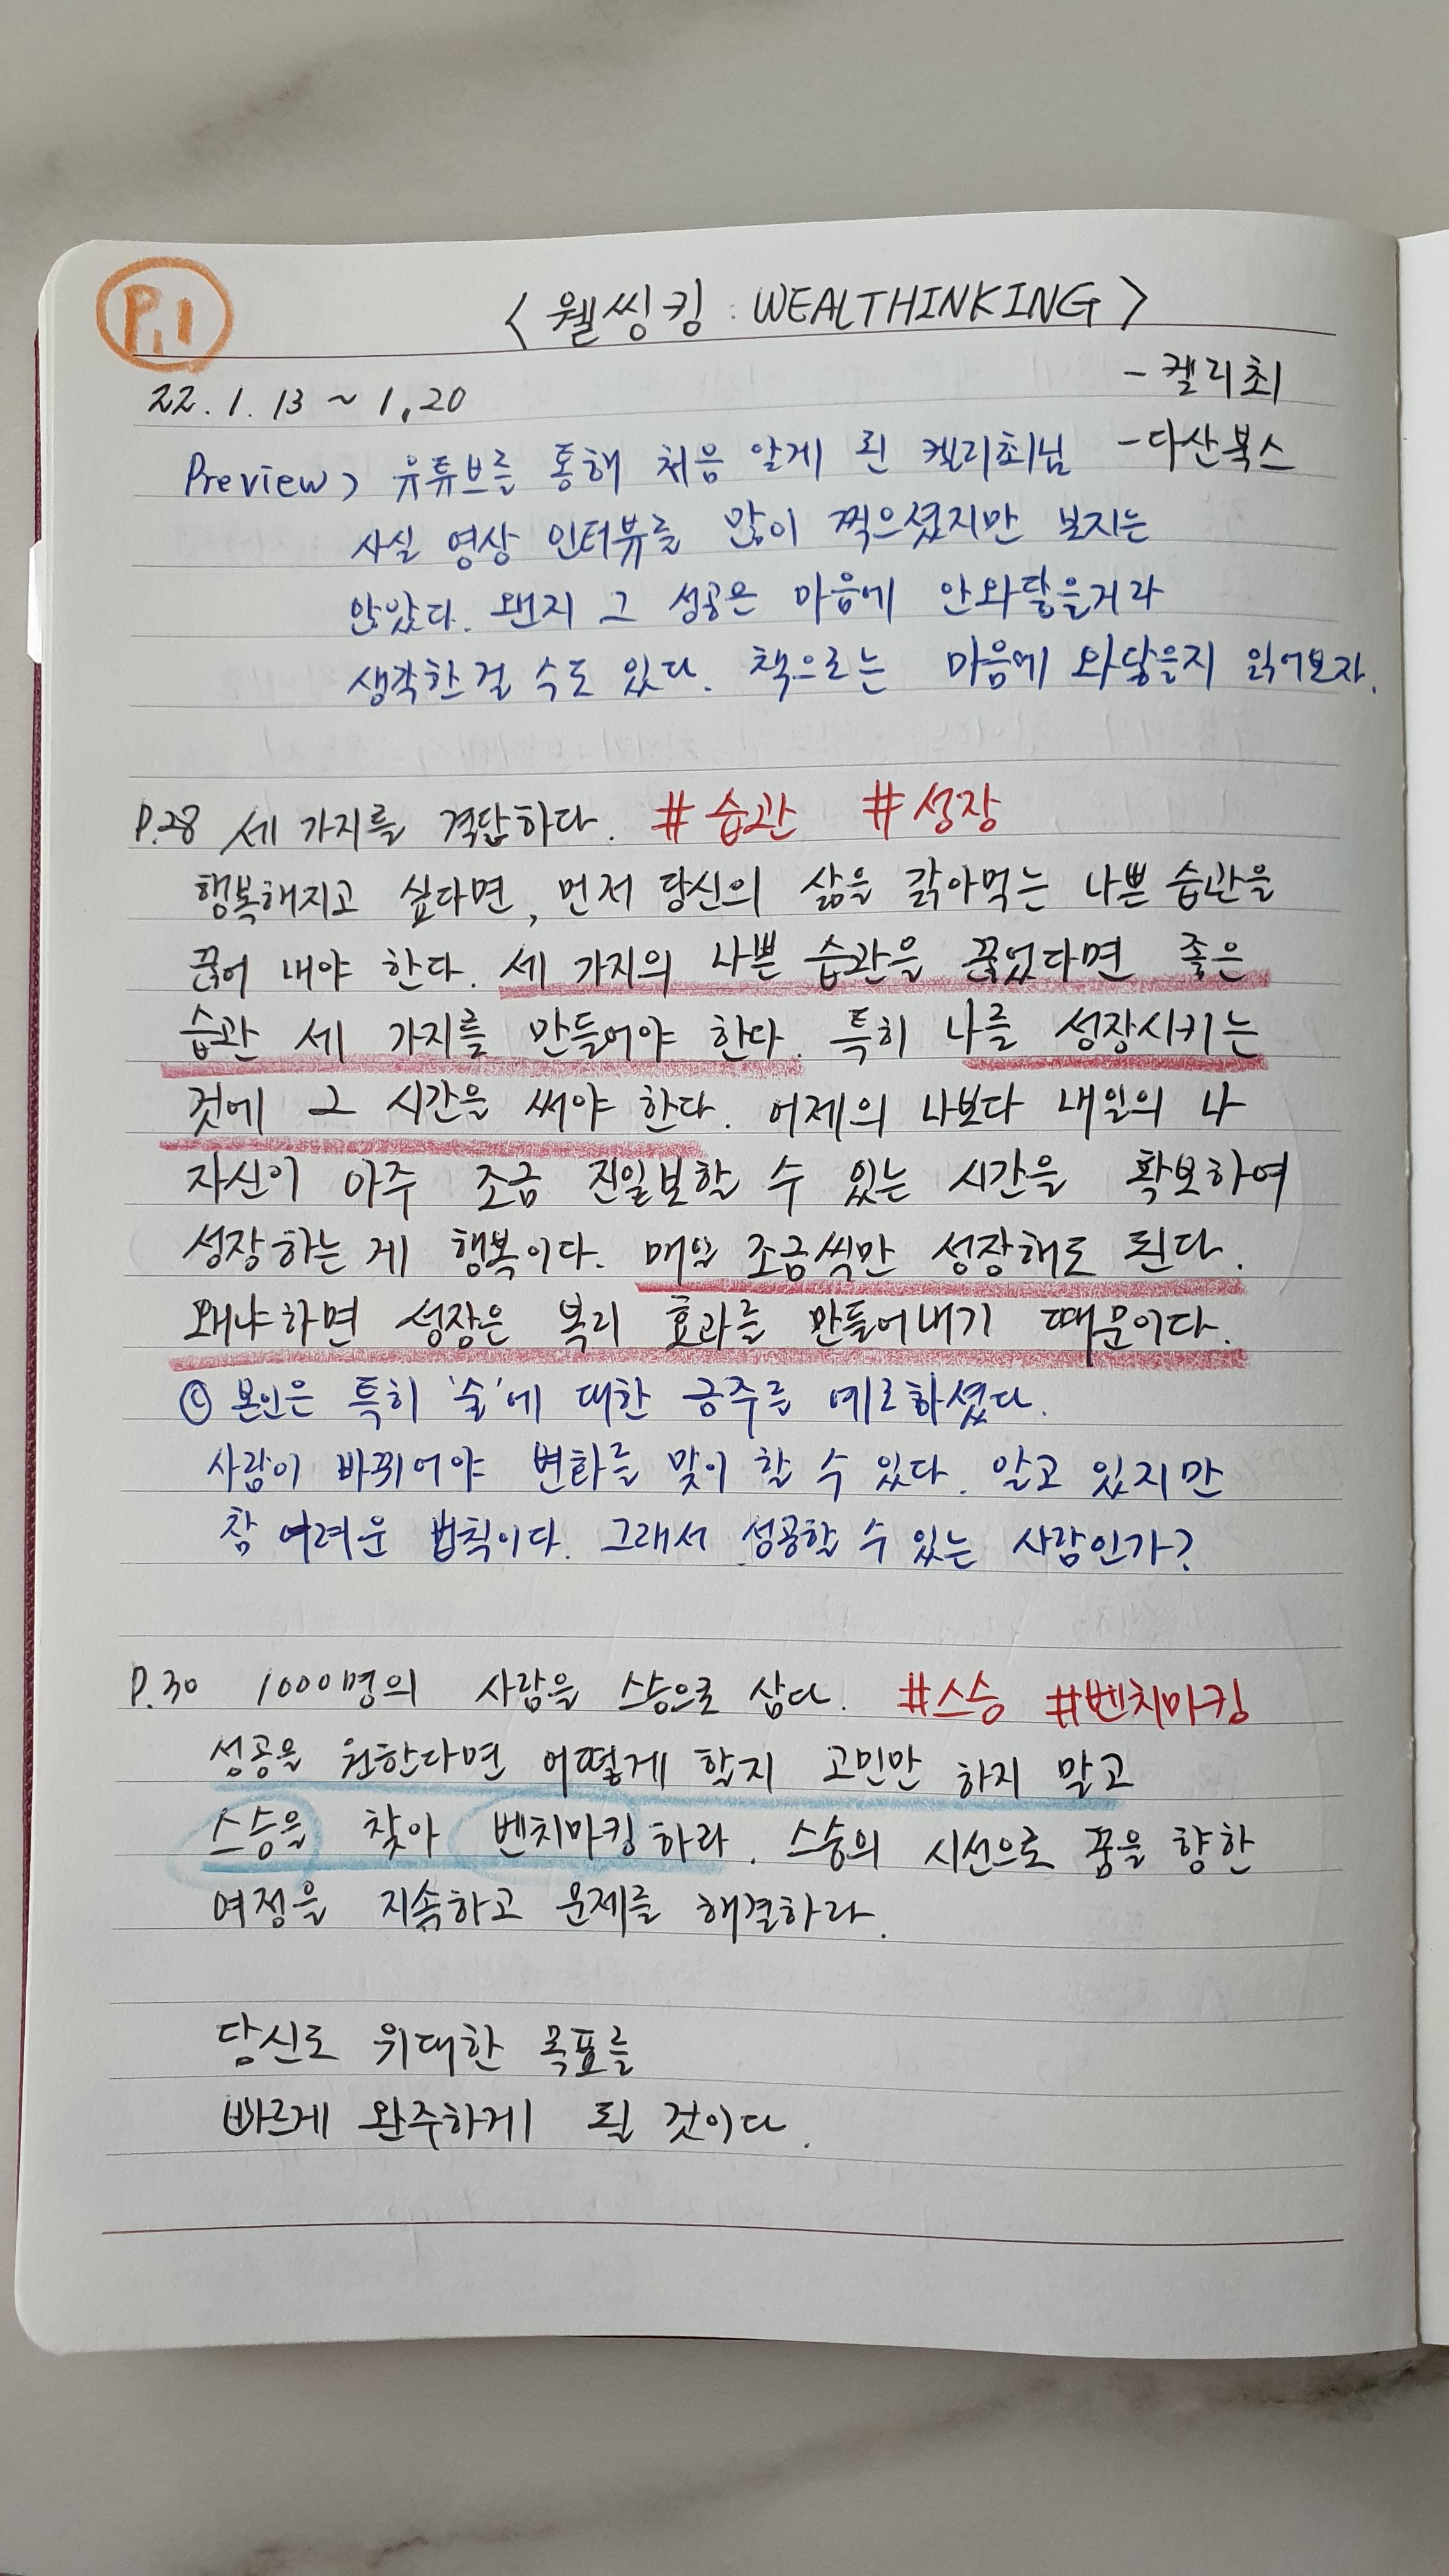 P.1
< 웰씽킹 : WEALTHINKING >
22. 1. 13 ~ 1. 20
- 켈리최
- 다산북스
Preview > 유튜브를 통해 처음 알게 된 켈리최님
사실 영상 인터뷰를 많이 찍으셨지만 보지는
않았다. 왠지 그 성공은 마음에 안와닿을거라
생각한걸 수도 있다. 책으로는 마음에 와닿을지 읽어보자.
P.28 세 가지를 결단하다. #습관 #성장
행복해지고 싶다면, 먼저 당신의 삶을 갉아먹는 나쁜 습관을
끊어 내야 한다. 세 가지의 나쁜 습관을 끊었다면 좋은
습관 세 가지를 만들어야 한다. 특히 나를 성장시키는
것에 그 시간을 써야 한다. 어제의 나보다 내일의 나
자신이 아주 조금 진일보할 수 있는 시간을 확보하여
성장하는게 행복이다. 매일 조금씩만 성장해도 된다.
왜냐하면 성장은 복리 효과를 만들어내기 때문이다.
본인은 특히 '술'에 대한 금주를 예로하셨다.
사람이 바뀌어야 변화를 맞이 할 수 있다. 알고 있지만
참 어려운 법칙이다. 그래서 성공할 수 있는 사람인가?
P.30 1000명의 사람을 스승으로 삼다. #스승 #벤치마킹
성공을 원한다면 어떻게 할지 고민만 하지 말고
스승을 찾아 벤치마킹하라. 스승의 시선으로 꿈을 향한
여정을 지속하고 문제를 해결하라.
당신도 위대한 목표를
빠르게 완주하게 될 것이다.